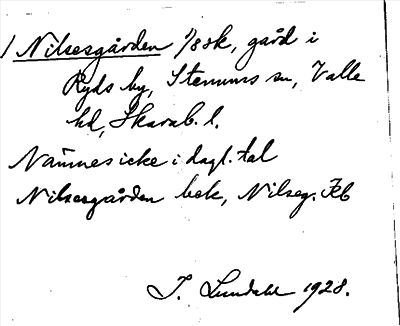 / Nilsesgården 1/8 sk, gård i
Ryds by, Stenums sn, Valle
hd, Skarab. l.
Nämnes icke i dagl. tal
Nilsesgården bek, Nilseg. Kb
I. Lundahl 1928.